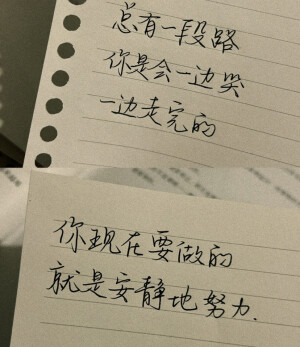 总有一段路
你是会一边哭
一边走完的
你现在要做的
就是安静地努力.